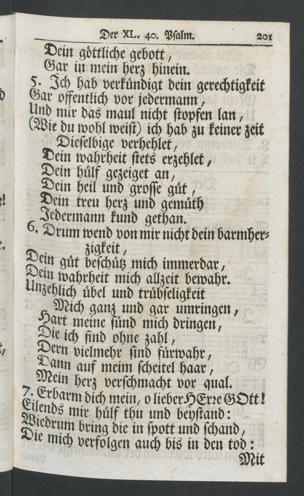 Der XL. 40. Psalm. 201
Dein göttliche gebott,
Gar in mein herz hinein.
5. Ich hab verkündigt dein gerechtigkeit
Gar offentlich vor jedermann,
Und mir das maul nicht stopfen lan,
(Wie du wohl weist) ich hab zu keiner zeit
Dieselbige verhehlet,
Dein wahrheit stets erzehlet,
Dein hülf gezeiget an,
Dein heil und grosse güt,
Dein treu herz und gemüth
Jedermann kund gethan.
6. Drum wend von mir nicht dein barmher-
zigkeit,
Dein güt beschütz mich immerdar,
Dein wahrheit mich allzeit bewahr.
Unzehlich übel und trübseligkeit
Mich ganz und gar umringen,
Hart meine sünd mich dringen,
Die ich sind ohne zahl,
Dern vielmehr sind fürwahr,
Dann auf meim scheitel haar,
Mein herz verschmacht vor qual.
7. Erbarm dich mein, o lieber HErre GOtt!
Eilends mir hülf thu und beystand:
Wiedrum bring die in spott und schand,
Die mich verfolgen auch bis in den tod:
Mit